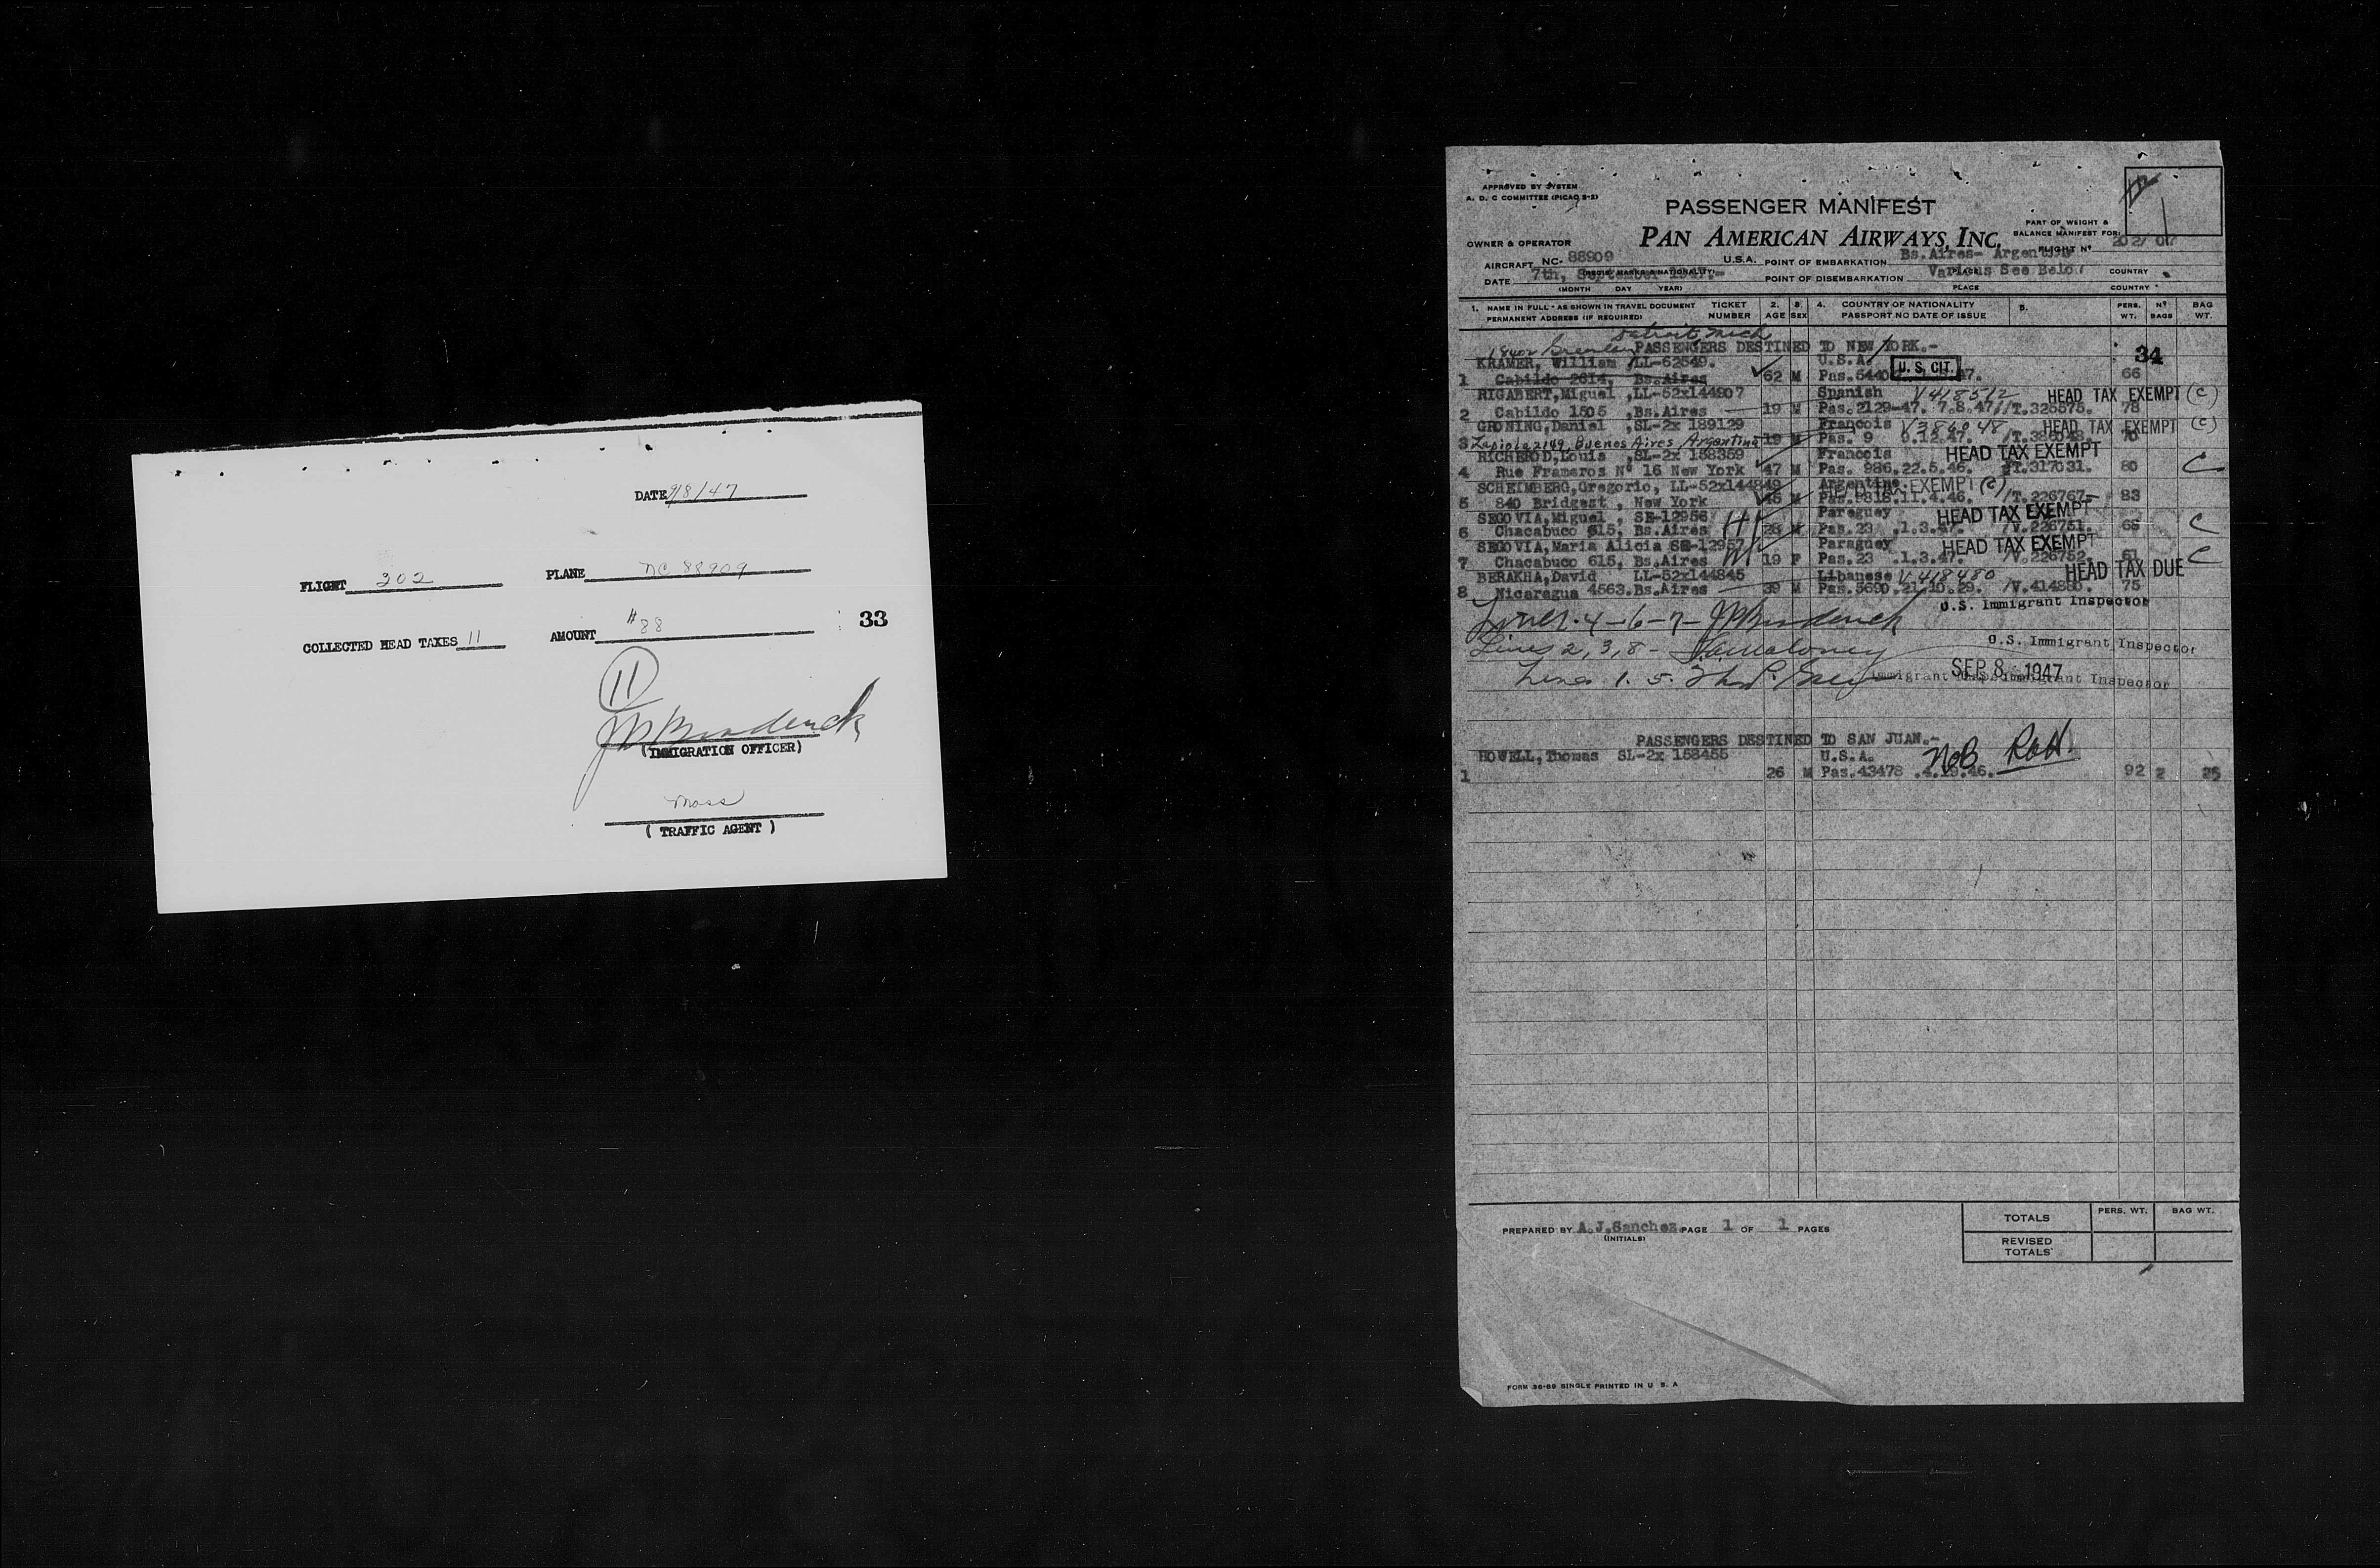 DATE 9/8/47
FLIGHT 202 PLANE NC 88909
33
COLLECTED HEAD TAXES 11 AMOUNT $88
11
JM Broderick
(IMMIGRATION OFFICER)
Moss
( TRAFFIC AGENT )
APPROVED BY SYSTEM
A. D. C COMMITTEE (PICAO 5-2)
PASSENGER MANIFEST
PAN AMERICAN AIRWAYS, INC.
PART OF WEIGHT &
BALANCE MANIFEST FOR:
FLIGHT Nº 202/07
OWNER & OPERATOR
AIRCRAFT NC- 88909 U.S.A. POINT OF EMBARKATION Bs.Aires- Argentina
(REGIS. MARKS & NATIONALITY) PLACE COUNTRY
DATE 7th, September 1947.- POINT OF DISEMBARKATION Various See Below
(MONTH DAY YEAR) PLACE COUNTRY
1. NAME IN FULL - AS SHOWN IN TRAVEL DOCUMENT TICKET 2. 3. 4. COUNTRY OF NATIONALITY 5. PERS. Nº BAG
PERMANENT ADDRESS (IF REQUIRED) NUMBER AGE SEX PASSPORT NO DATE OF ISSUE WT. BAGS WT.
Detroit, Mich
PASSENGERS DESTINED TO NEW YORK.-
34
KRAMER, William /LL-62549. U.S.A. U.S. CIT.
1 Cabildo 2614, Bs.Aires 62 M Pas.5440 47. 66
RIGABERT,Miguel ,LL-52x144907 Spanish V418512 HEAD TAX EXEMPT (C)
2 Cabildo 1505 ,Bs.Aires 19 M Pas.2129-47. 7.8.47//T.325575. 78
GRONING,Daniel ,SL-2x 189129 Francois V386048 HEAD TAX EXEMPT (C)
3 Zapiola 2149, Buenos Aires Argentina 19 M Pas. 9 9.12.47. /T.386048. 70
RICHEROD,Louis ,SL-2x 158359 Francois HEAD TAX EXEMPT
4 Rue Frameros Nº 16 New York 47 M Pas. 986.22.5.46. /T.317031. 80 C
SCHEIMBERG,Gregorio, LL-52x144849 Argentine. HEAD TAX EXEMPT (C)
5 840 Bridgest , New York 45 M Pas.9818.11.4.46. /T.226767- 83
SEGOVIA,Miguel , SE-12956 H Paraguey HEAD TAX EXEMPT
6 Chacabuco 615, Bs.Aires 28 M Pas.23 .1.3.47. /V.226751. 65 C
SEGOVIA,Maria Alicia SE-12957 M Paraguey HEAD TAX EXEMPT
7 Chacabuco 615, Bs.Aires 19 F Pas.23 .1.3.47. /V.226752. 61 C
BERAKHA,David LL-52x144845 Libanese V418480 HEAD TAX DUE
8 Nicaragua 4563.Bs.Aires 39 M Pas.5690.21.10.29. /V.414880. 75
Lines. 4-6-7- JM Broderick U.S. Immigrant Inspector
Lines 2, 3, 8- Maloney U.S. Immigrant Inspector
SEP 8 1947
Lines 1. 5. Immigrant Inspector
PASSENGERS DESTINED TO SAN JUAN.-
HOWELL,Thomas SL-2x 158455 U.S.A.
1 26 M Pas.43478 .4.19.46. 92 2 25
PREPARED BY A.J.Sanchez PAGE 1 OF 1 PAGES
(INITIALS)
PERS. WT. BAG WT.
TOTALS
REVISED
TOTALS
FORM 36-60 SINGLE PRINTED IN U S. A